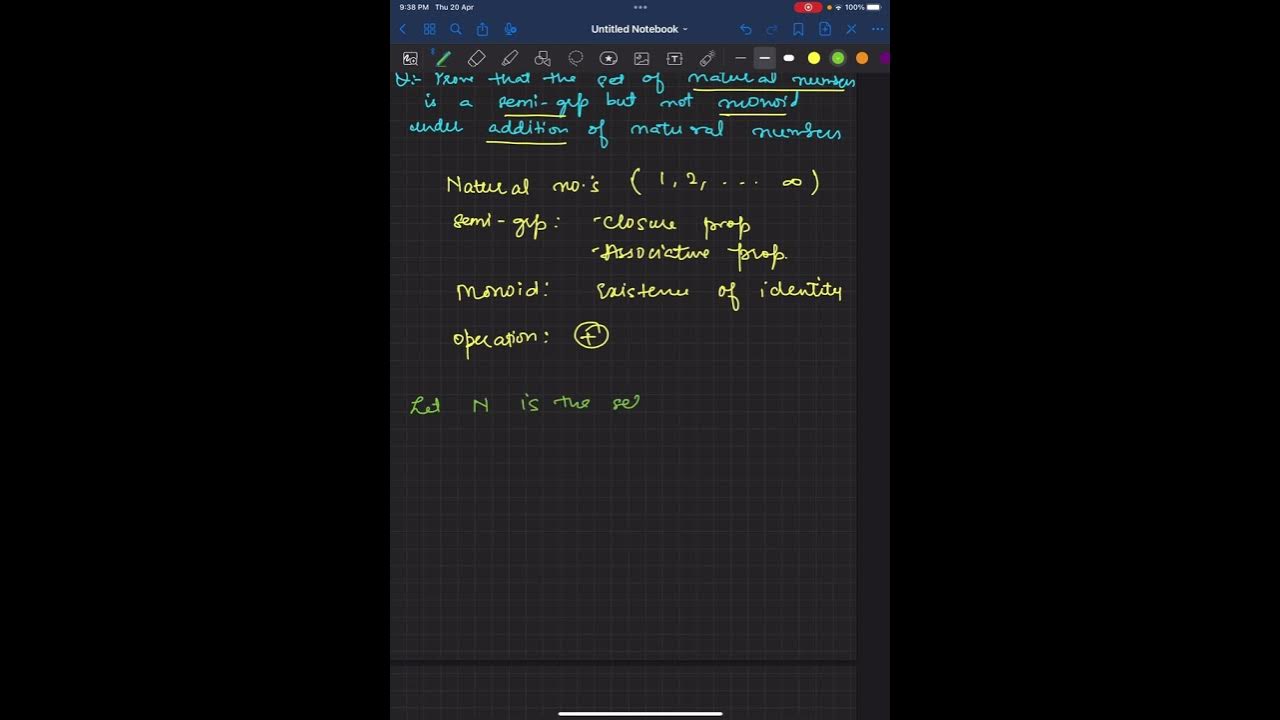 9:38 PM Thu 20 Apr
100%
Untitled Notebook
Q:- Prove that the set of natural numbers
is a semi-grp but not monoid
under addition of natural numbers
Natural no.s ( 1, 2, ... ∞ )
semi-grp: - Closure prop
- Associative prop.
Monoid: Existence of identity
operation: +
Let N is the se